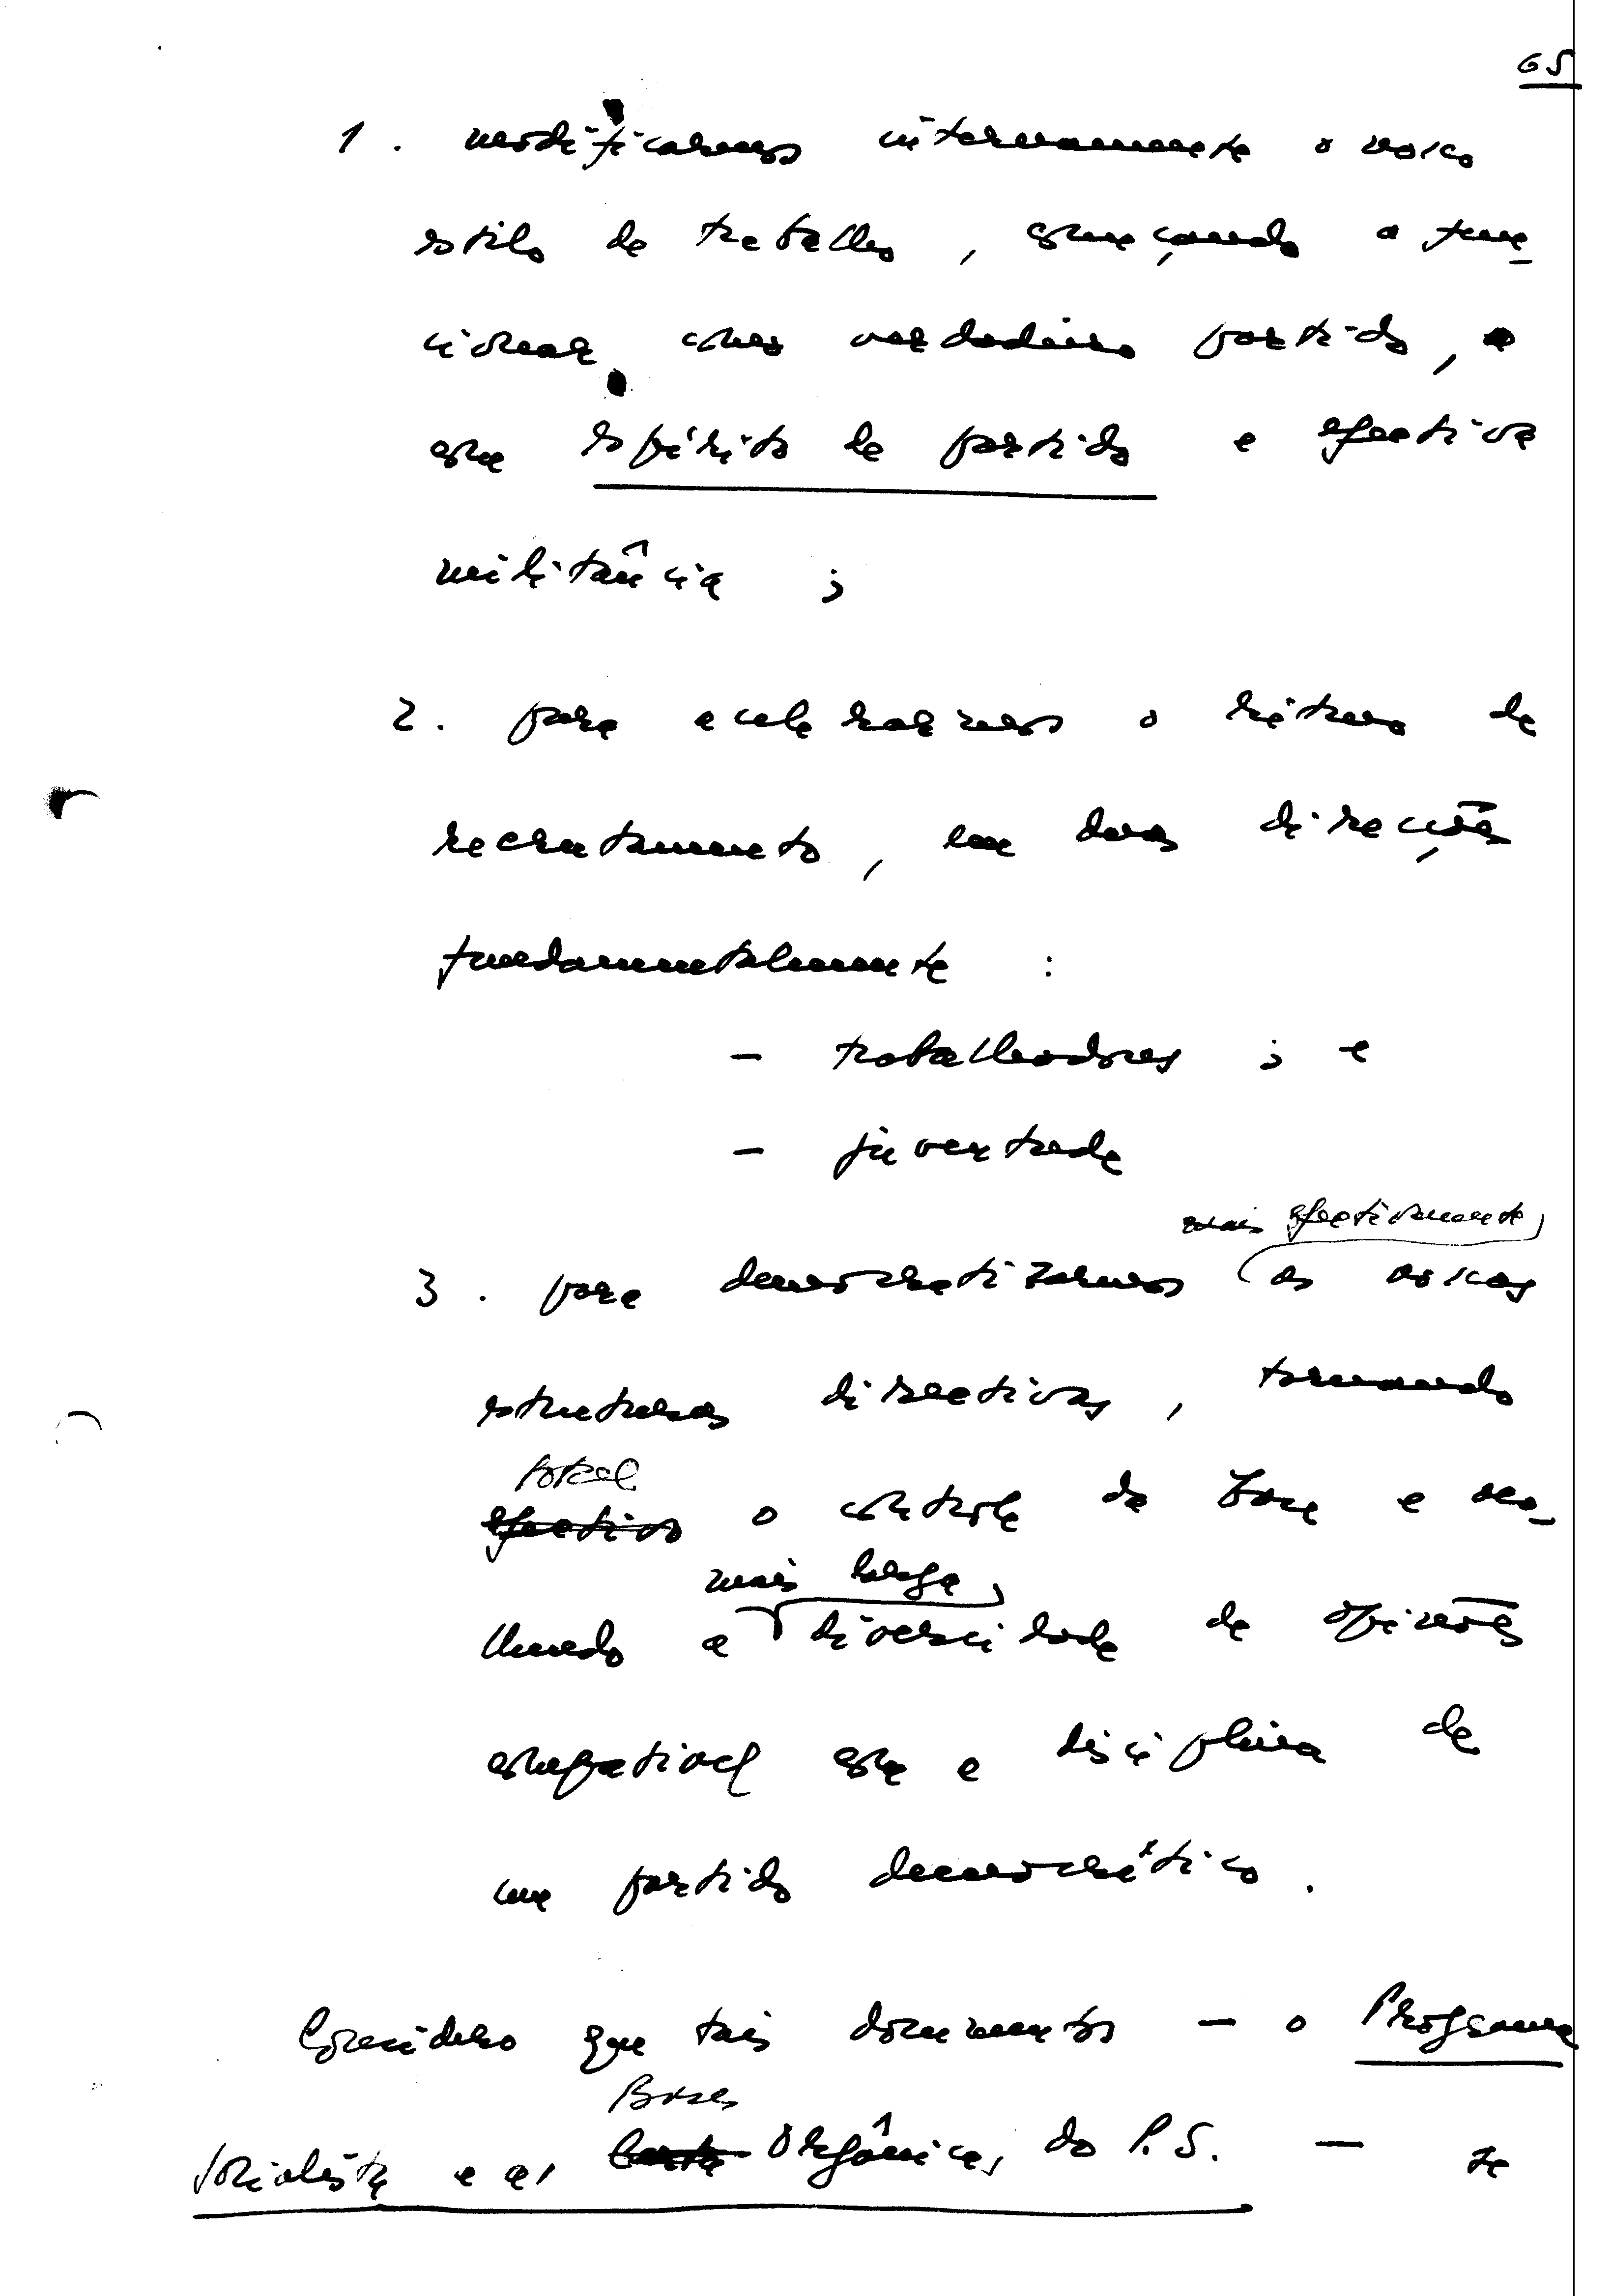 65
1. modificarmos internamente o nosso
estilo de trabalho, começando a fun-
cionar, como verdadeiro partido,
com espírito de partido e efectiva
militância;
2. para acelerarmos o ritmo de
recrutamento, em duas direcções
fundamentalmente:
- trabalhadores; e
- juventude
mais efectivamente
3. para democratizarmos as nossas
estruturas directivas, tornando
total
efectivo o controle da base e aco-
mais larga
lhendo a diversidade de opiniões
compatível com a disciplina de
um partido democrático.
Considero que tais documentos — o Programa
Bases
Socialista e as Carta Orgânicas do P.S. — se